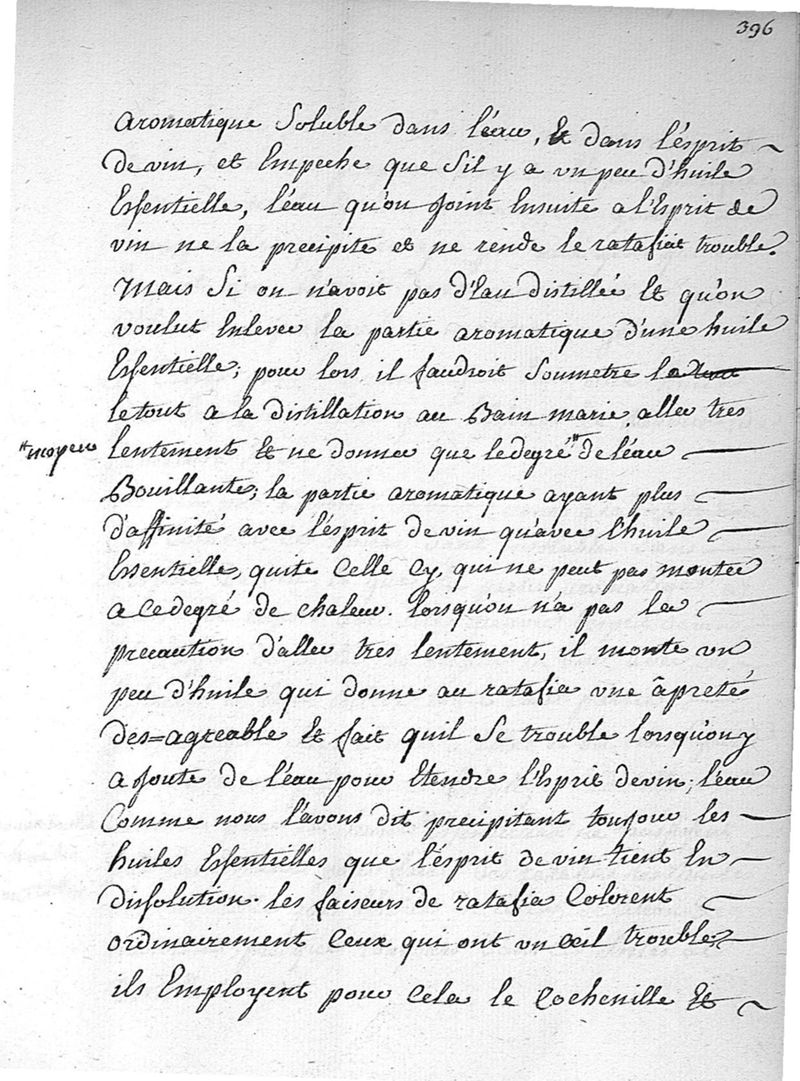 396
aromatique Soluble dans l'éau, et dans l'ésprit
de vin, et Empeche que s'il y a un peu d'huile
Essentielle, l'éau qu'on joint Ensuite a l'Esprit de
vin ne la precipite et ne rende le ratafiat trouble.
Mais Si on n'avoit pas d'Eau distillée Et qu'on
voulut Enlever la partie aromatique d'une huile
Essentielle, pour lors il faudroit Soumetre le tout
le tout a la distillation au Bain marie, aller tres
lentement Et ne donner que le degré # de l'éau
# moyen
Bouillante; la partie aromatique ayant plus
d'affinité avec l'ésprit de vin qu'avec l'huile
Essentielle, quite Celle Cy, qui ne peut pas monter
a ce degré de chaleur. lorsqu'on n'a pas la
precaution d'aller tres lentement, il monte un
peu d'huile qui donne au ratafia une âpreté
des=agreable Et fait qu'il Se trouble lorsqu'on y
ajoute de l'éau pour Etendre l'Esprit de vin; l'éau
Comme nous l'avons dit precipitant toujour les
huiles Essentielles que l'ésprit de vin tient En
dissolution. les faiseurs de ratafia Colorent
ordinairement Ceux qui ont un œil trouble,
ils Employent pour Cela le Cochenille Et